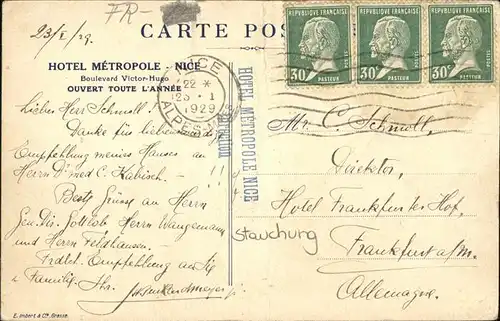 FR-
CARTE POS
23/I/29.
HOTEL MÉTROPOLE - NICE
Boulevard Victor-Hugo
OUVERT TOUTE L'ANNÉE
NICE
22 *
23 · 1
1929
ALPES-M
RÉPUBLIQUE FRANÇAISE
30c
POSTES
PASTEUR
RÉPUBLIQUE FRANÇAISE
30c
POSTES
PASTEUR
RÉPUBLIQUE FRANÇAISE
30c
POSTES
PASTEUR
HOTEL METROPOLE NICE
Lieber Herr Schmoll!
Danke für
Empfehlung meines Hauses an
Herrn Dr med C. Kabisch. !!
Beste Grüsse an Herrn
Gen. Dir. Gottlob Herrn Wangemann
und Herrn Feldhausen.
Empfehlung an Sie
& Familie. Ihr.
Mr. C. Schmoll.
Direktor,
Hotel Frankfurter Hof,
Stauchung
Frankfurt a/m.
Allemagne.
E. Imbert & Cie, Grasse.